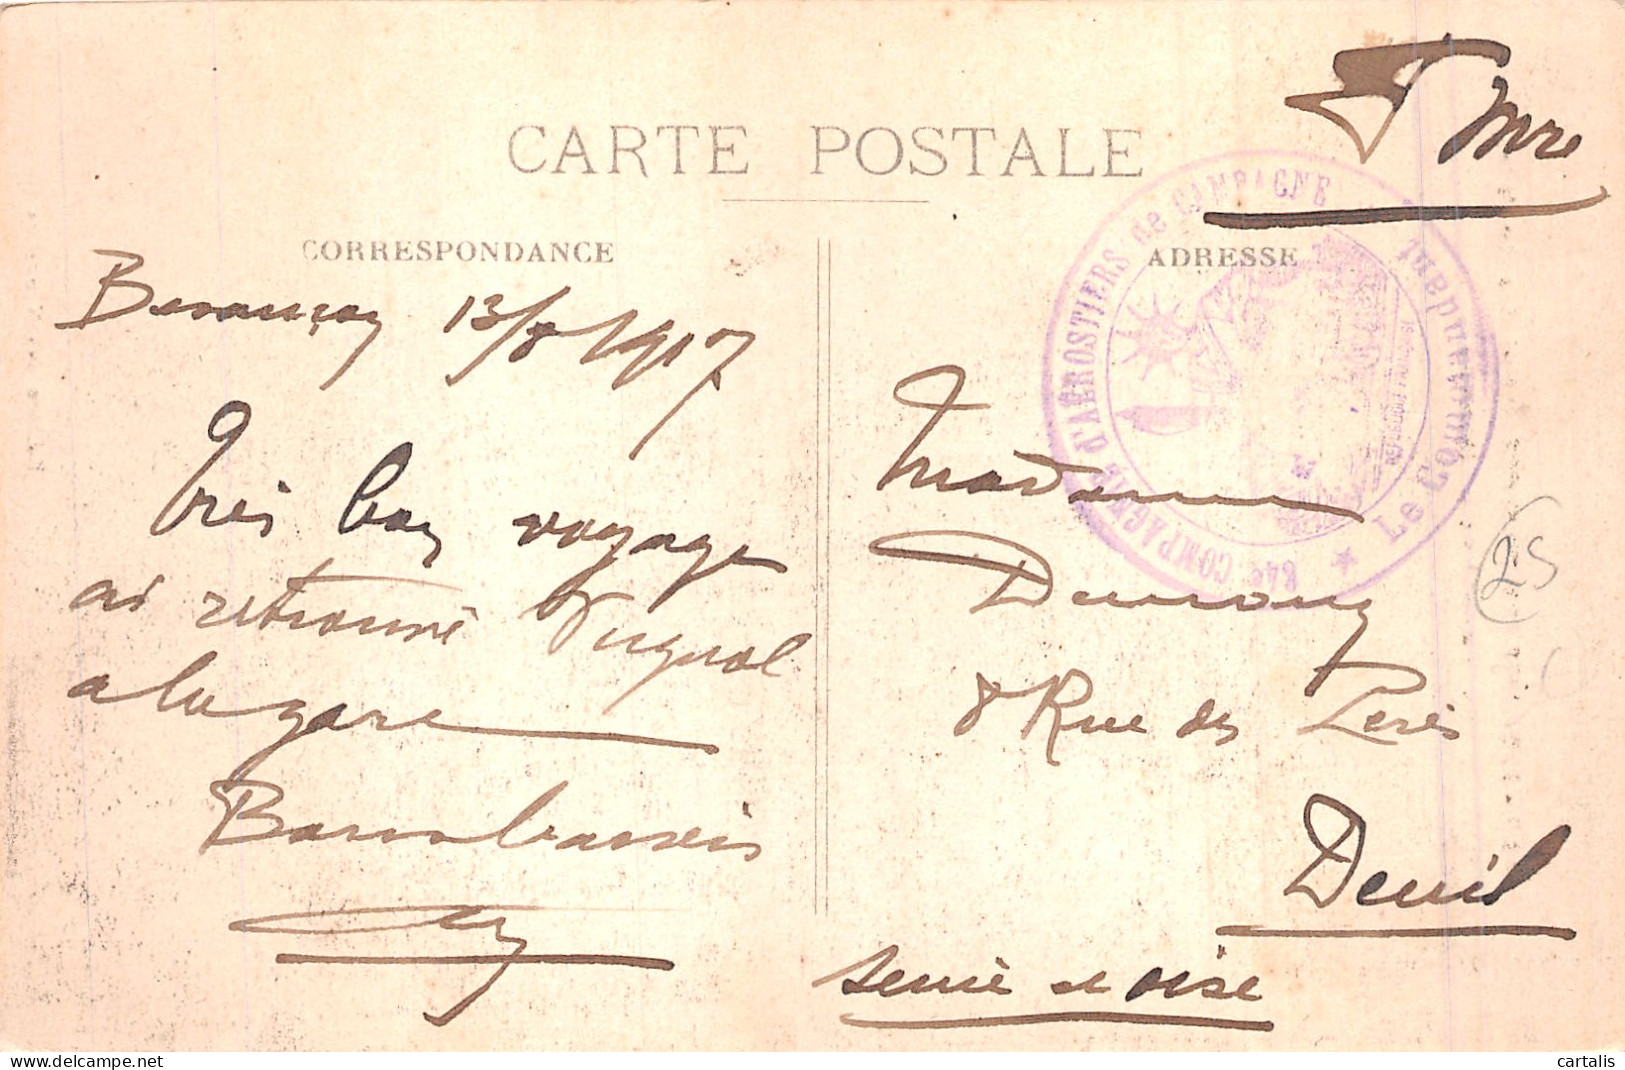 CARTE POSTALE
CORRESPONDANCE
ADRESSE
84e COMPAGNIE D'AÉROSTIERS de CAMPAGNE
★ Le Commandant
Besançon 13/8/1917
Très bon voyage
ai retrouvé
a la gare
Madame
8 Rue des
Deuil
Seine et Oise
25
cartalis
delcampe.net